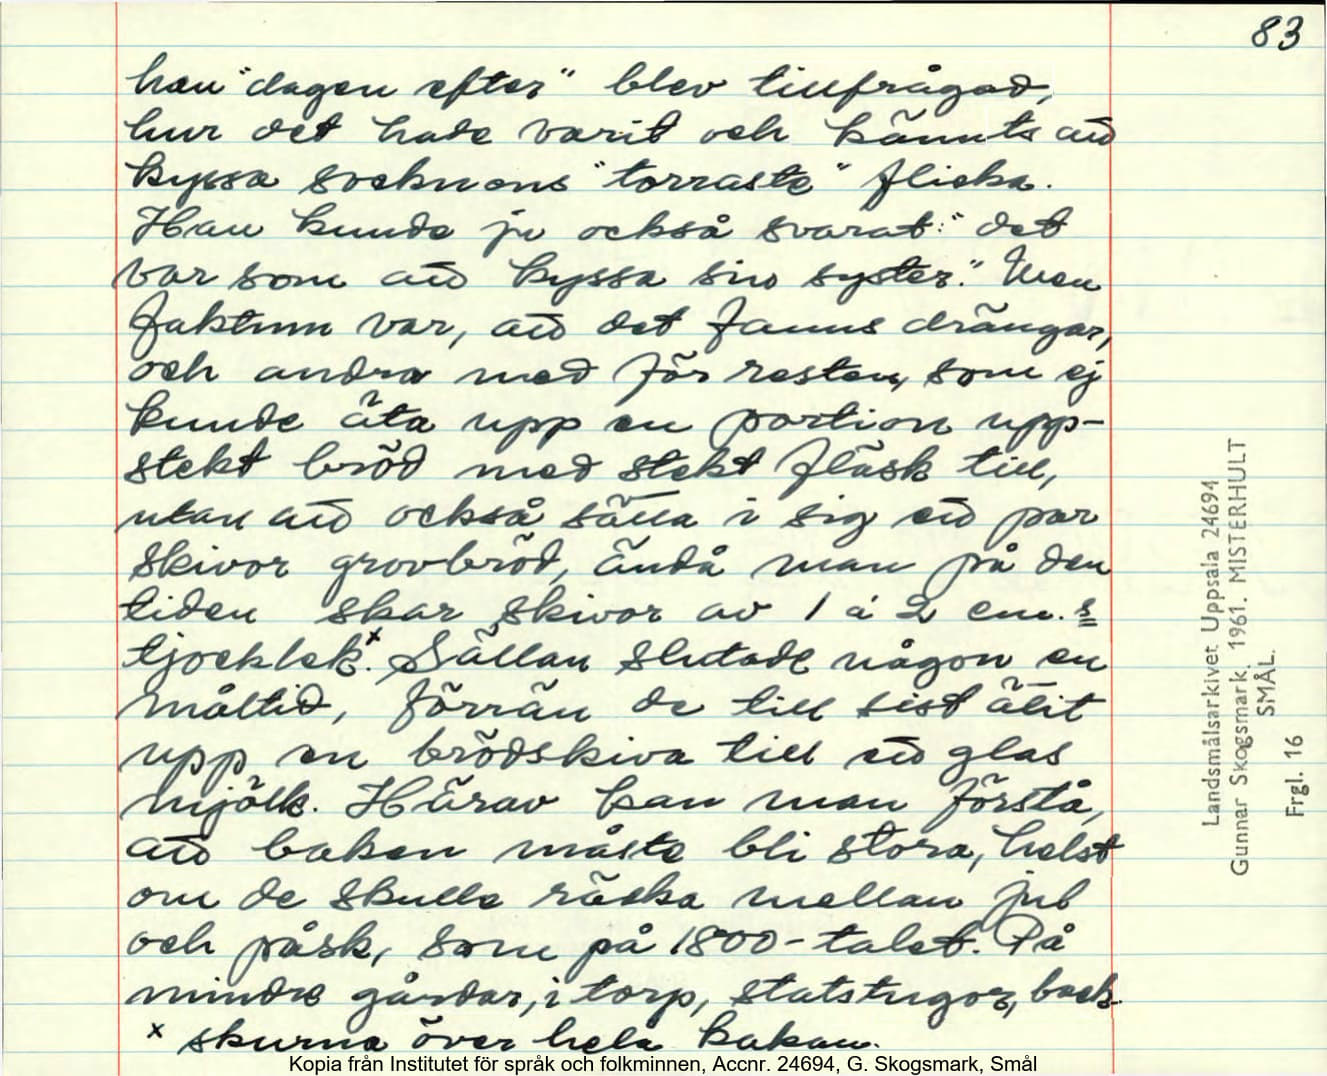 83
han "dagen efter" blev tillfrågad,
hur det hade varit och kännts att
kyssa socknens "torraste" flicka.
Han kunde ju också svarat: "det
var som att kyssa sin syster." Men
faktum var, att det fanns drängar,
och andra med för resten, som ej
kunde äta upp en portion upp-
stekt bröd med stekt fläsk till,
utan att också sätta i sig ett par
skivor grovbröd, ändå man på den
tiden skar skivor av 1 à 2 cm.s
tjocklek.x Sällan slutade någon en
måltid, förrän de till sist ätit
upp en brödskiva till ett glas
mjölk. Härav kan man förstå,
att baken måste bli stora, helst
om de skulle räcka mellan jul
och påsk, som på 1800-talet. På
mindre gårdar, i torp, statstugor, back-
x skurna över hela kakan.
Landsmålsarkivet Uppsala 24694
Gunnar Skogsmark. 1961. MISTERHULT
SMÅL.
Frgl. 16
Kopia från Institutet för språk och folkminnen, Accnr. 24694, G. Skogsmark, Smål